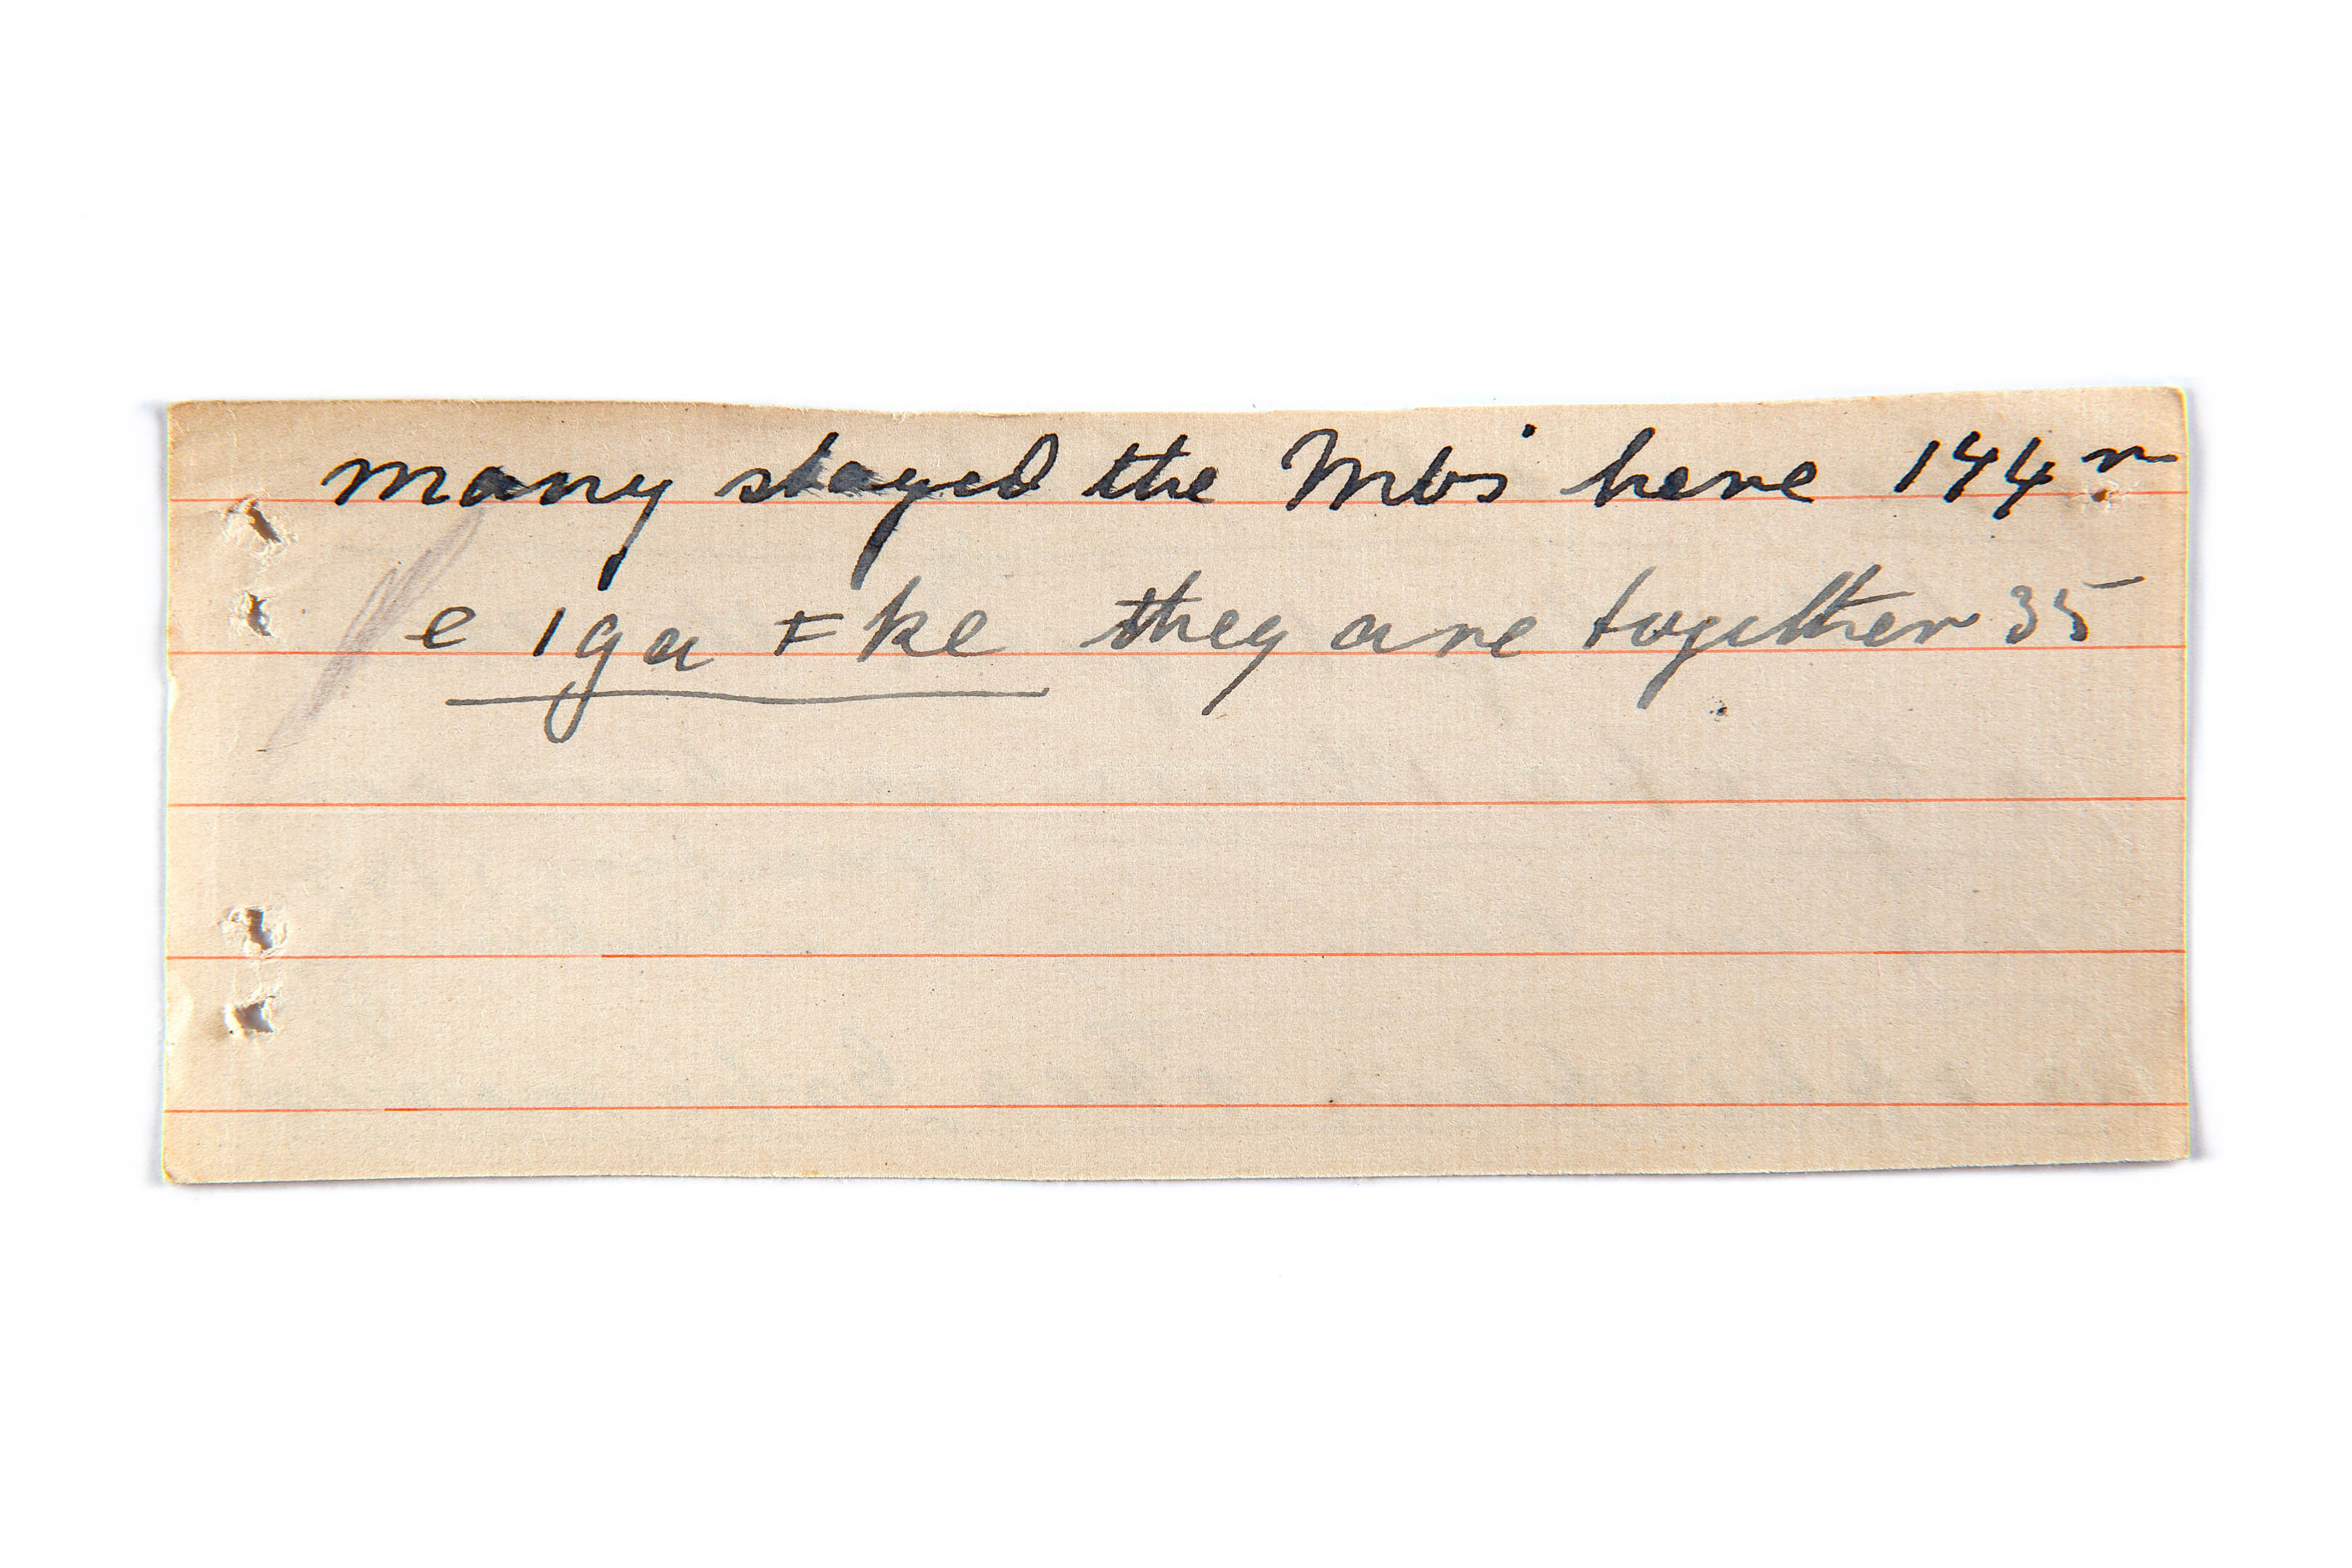 many stayed the Mbs here 144 r
e ıga ŧke they are together 35